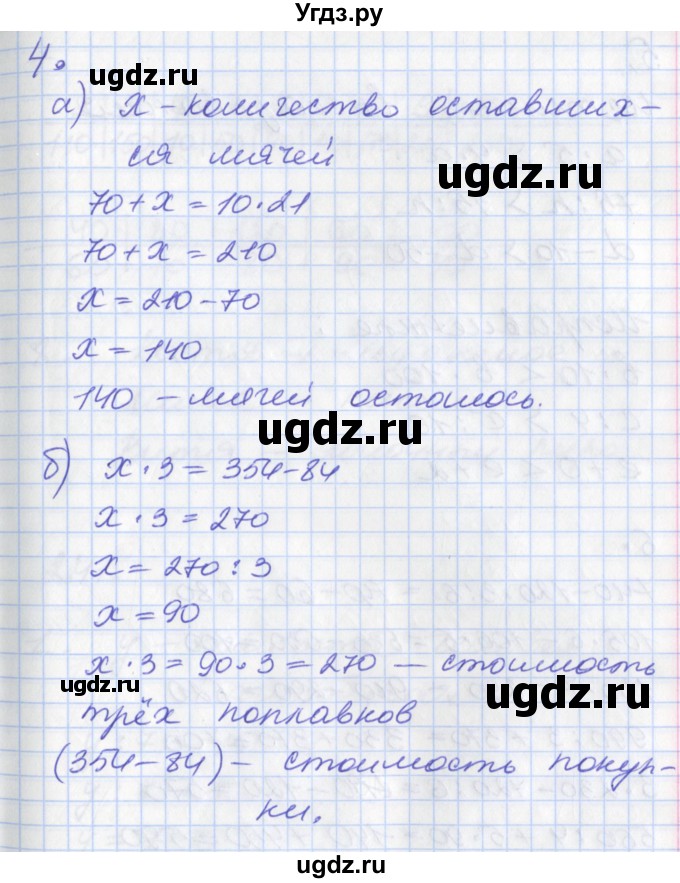 Угдз.ру
4.
ugdz.ru
а) x - количество оставших-
ся мячей
ugdz.ru
70 + x = 10 · 21
70 + x = 210
x = 210 - 70
x = 140
140 - мячей осталось.
ugdz.ru
б) x · 3 = 354 - 84
x · 3 = 270
x = 270 : 3
x = 90
x · 3 = 90 · 3 = 270 — стоимость
ugdz.ru
ugdz.ru
трёх поплавков
(354 - 84) - стоимость покуп-
ки.
ugdz.ru